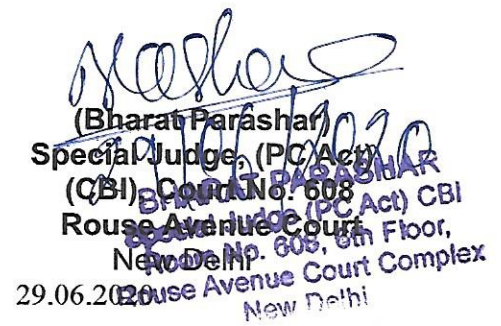 (Bharat Parashar)
Special Judge, (PC Act)
(CBI), Court No. 608
Rouse Avenue Court
New Delhi
29.06.2020
29/06/2020
BHARAT PARASHAR
Special Judge (PC Act) CBI
Room No. 608, 6th Floor,
Rouse Avenue Court Complex
New Delhi